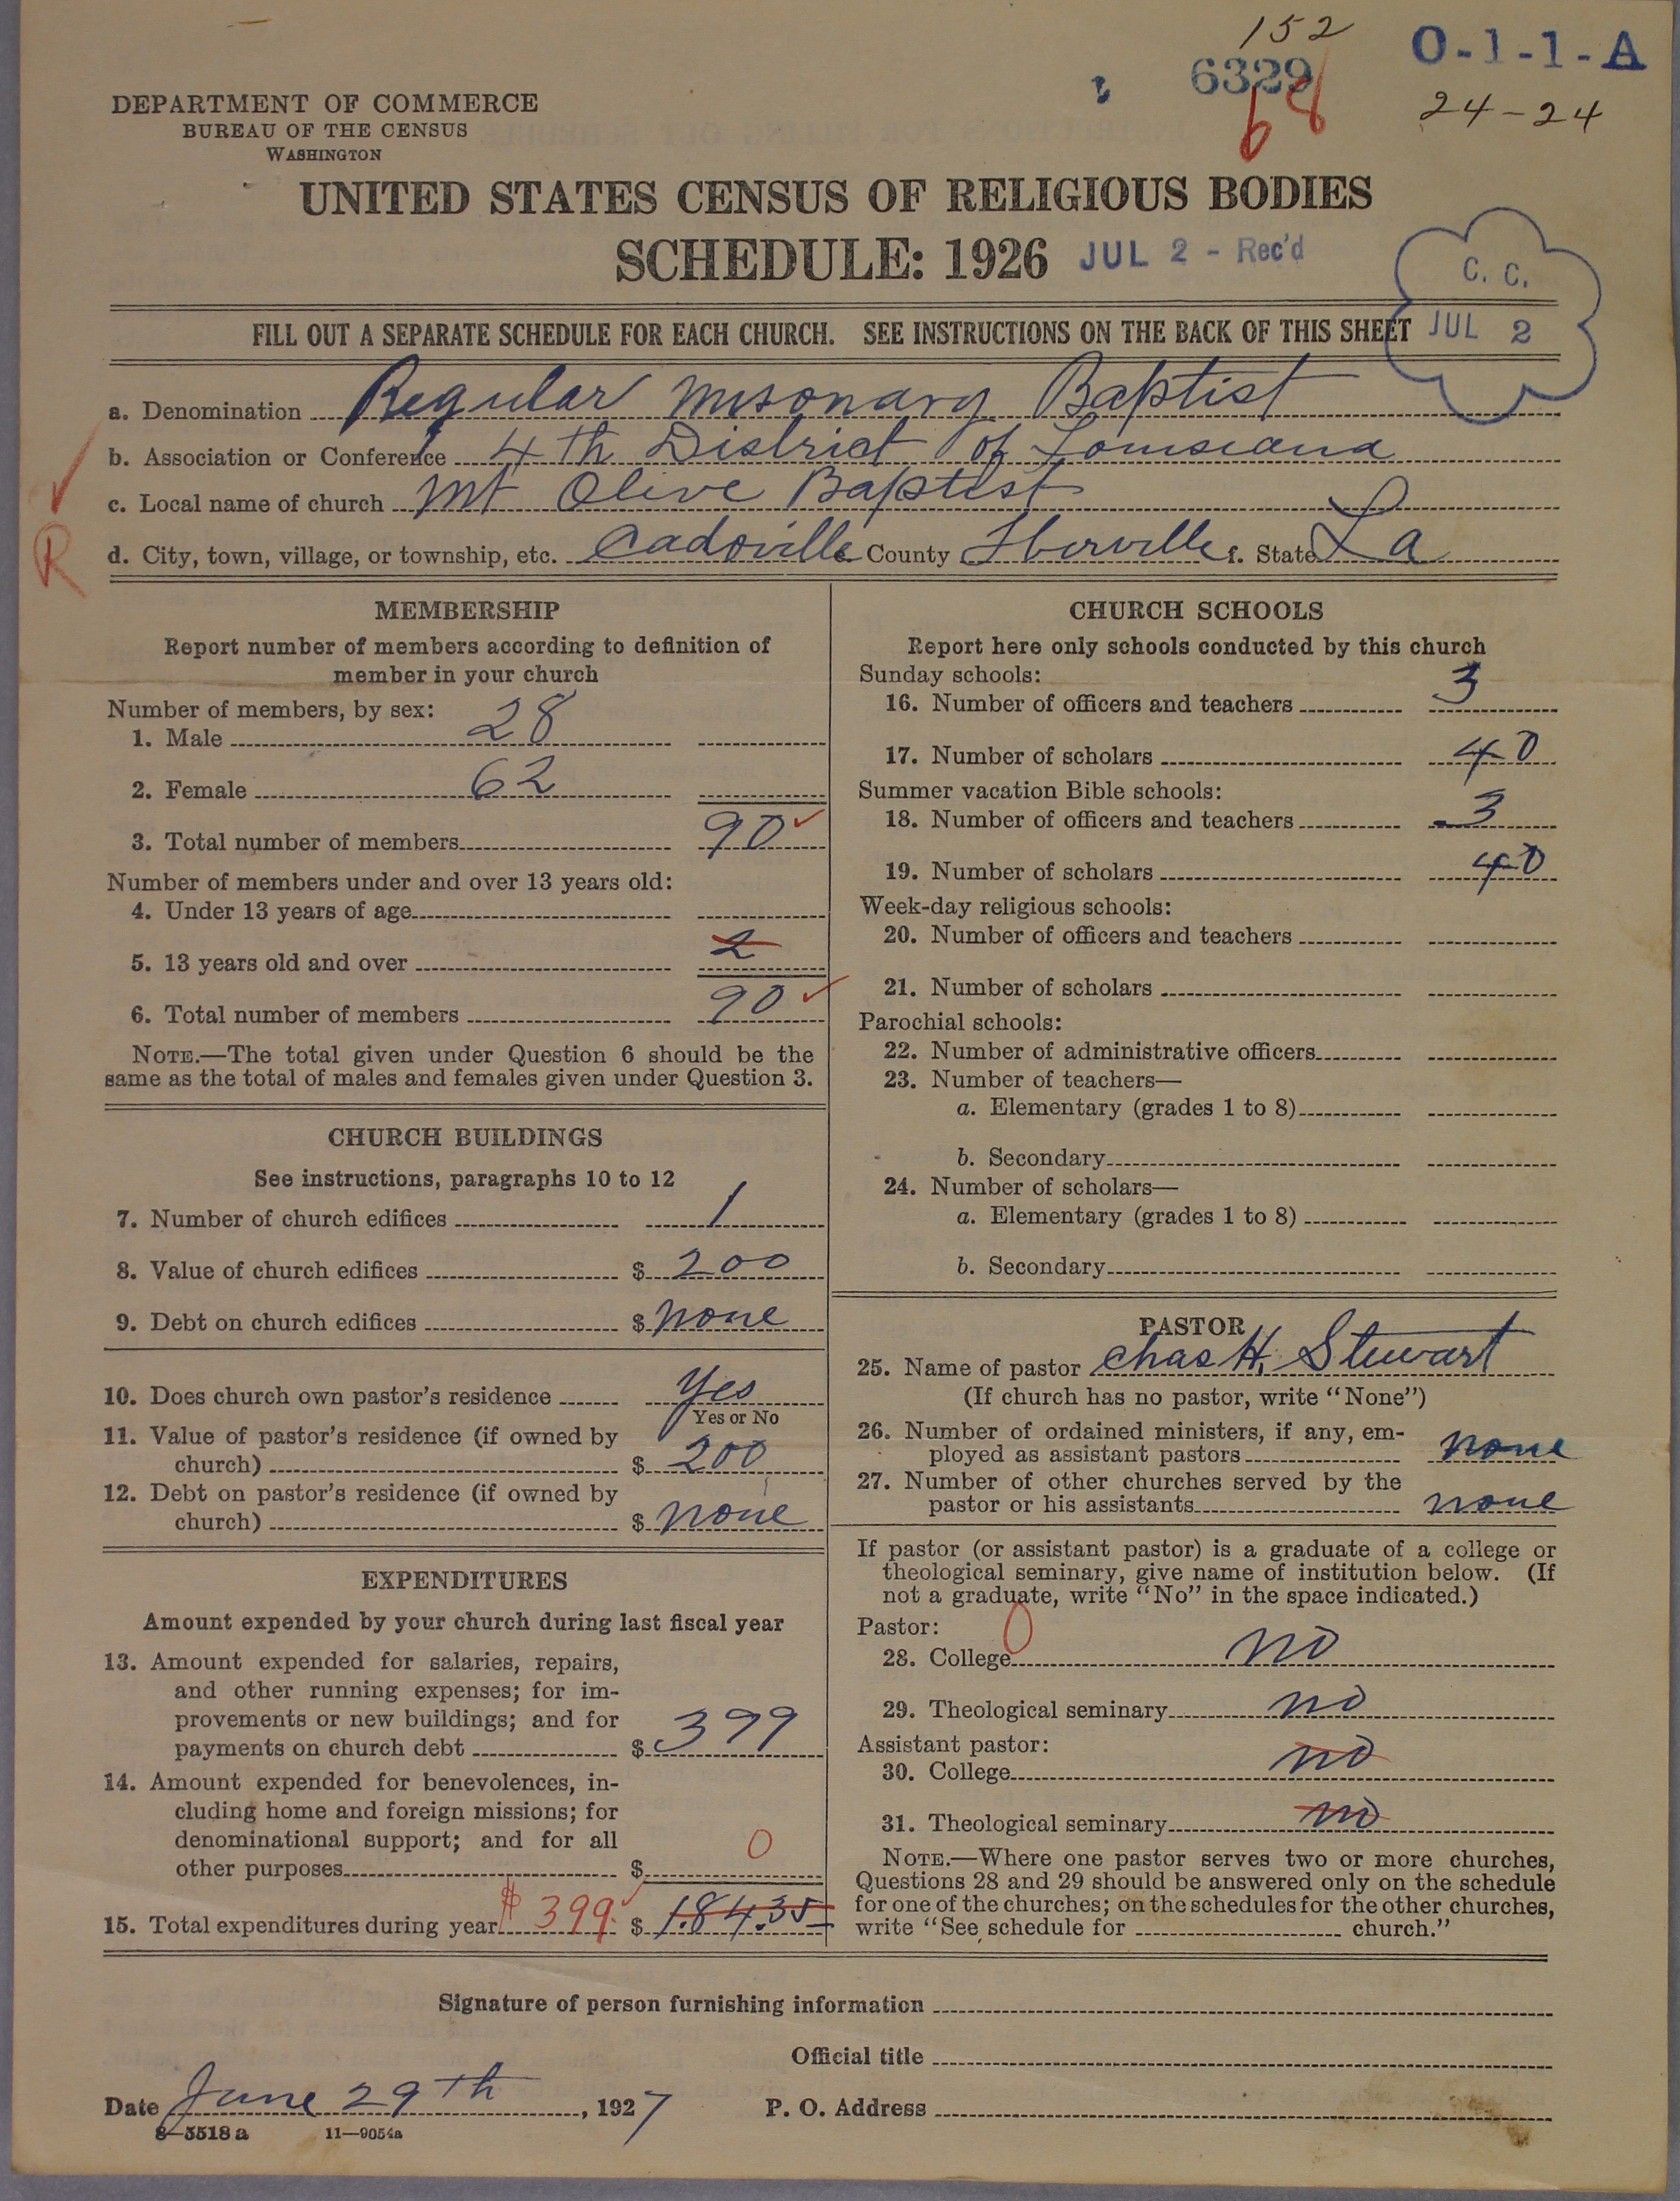 152
6329
68
O-1-1-A
24-24
DEPARTMENT OF COMMERCE
BUREAU OF THE CENSUS
WASHINGTON
UNITED STATES CENSUS OF RELIGIOUS BODIES
SCHEDULE: 1926 JUL 2 - Rec'd
C. C.
JUL 2
FILL OUT A SEPARATE SCHEDULE FOR EACH CHURCH. SEE INSTRUCTIONS ON THE BACK OF THIS SHEET
a. Denomination Regular Missonary Baptist
b. Association or Conference 4th District of Louisiana
c. Local name of church Mt Olive Baptist
R
d. City, town, village, or township, etc. Cadoville e. County Iberville f. State La
MEMBERSHIP
Report number of members according to definition of
member in your church
Number of members, by sex:
1. Male 28
2. Female 62
3. Total number of members 90
Number of members under and over 13 years old:
4. Under 13 years of age
5. 13 years old and over 2
6. Total number of members 90
NOTE.—The total given under Question 6 should be the
same as the total of males and females given under Question 3.
CHURCH BUILDINGS
See instructions, paragraphs 10 to 12
7. Number of church edifices 1
8. Value of church edifices $ 200
9. Debt on church edifices $ none
10. Does church own pastor's residence Yes
Yes or No
11. Value of pastor's residence (if owned by
church) $ 200
12. Debt on pastor's residence (if owned by
church) $ none
EXPENDITURES
Amount expended by your church during last fiscal year
13. Amount expended for salaries, repairs,
and other running expenses; for im-
provements or new buildings; and for
payments on church debt $ 399
14. Amount expended for benevolences, in-
cluding home and foreign missions; for
denominational support; and for all
other purposes $ 0
15. Total expenditures during year $399 $ 184.35
CHURCH SCHOOLS
Report here only schools conducted by this church
Sunday schools:
16. Number of officers and teachers 3
17. Number of scholars 40
Summer vacation Bible schools:
18. Number of officers and teachers 3
19. Number of scholars 40
Week-day religious schools:
20. Number of officers and teachers
21. Number of scholars
Parochial schools:
22. Number of administrative officers
23. Number of teachers—
a. Elementary (grades 1 to 8)
b. Secondary
24. Number of scholars—
a. Elementary (grades 1 to 8)
b. Secondary
PASTOR
25. Name of pastor Chas H. Stewart
(If church has no pastor, write "None")
26. Number of ordained ministers, if any, em-
ployed as assistant pastors none
27. Number of other churches served by the
pastor or his assistants none
If pastor (or assistant pastor) is a graduate of a college or
theological seminary, give name of institution below. (If
not a graduate, write "No" in the space indicated.)
Pastor: 0
28. College no
29. Theological seminary no
Assistant pastor:
30. College no
31. Theological seminary no
NOTE.—Where one pastor serves two or more churches,
Questions 28 and 29 should be answered only on the schedule
for one of the churches; on the schedules for the other churches,
write "See schedule for church."
Signature of person furnishing information
Official title
Date June 29th, 1927 P. O. Address
8-5518a 11-9054a